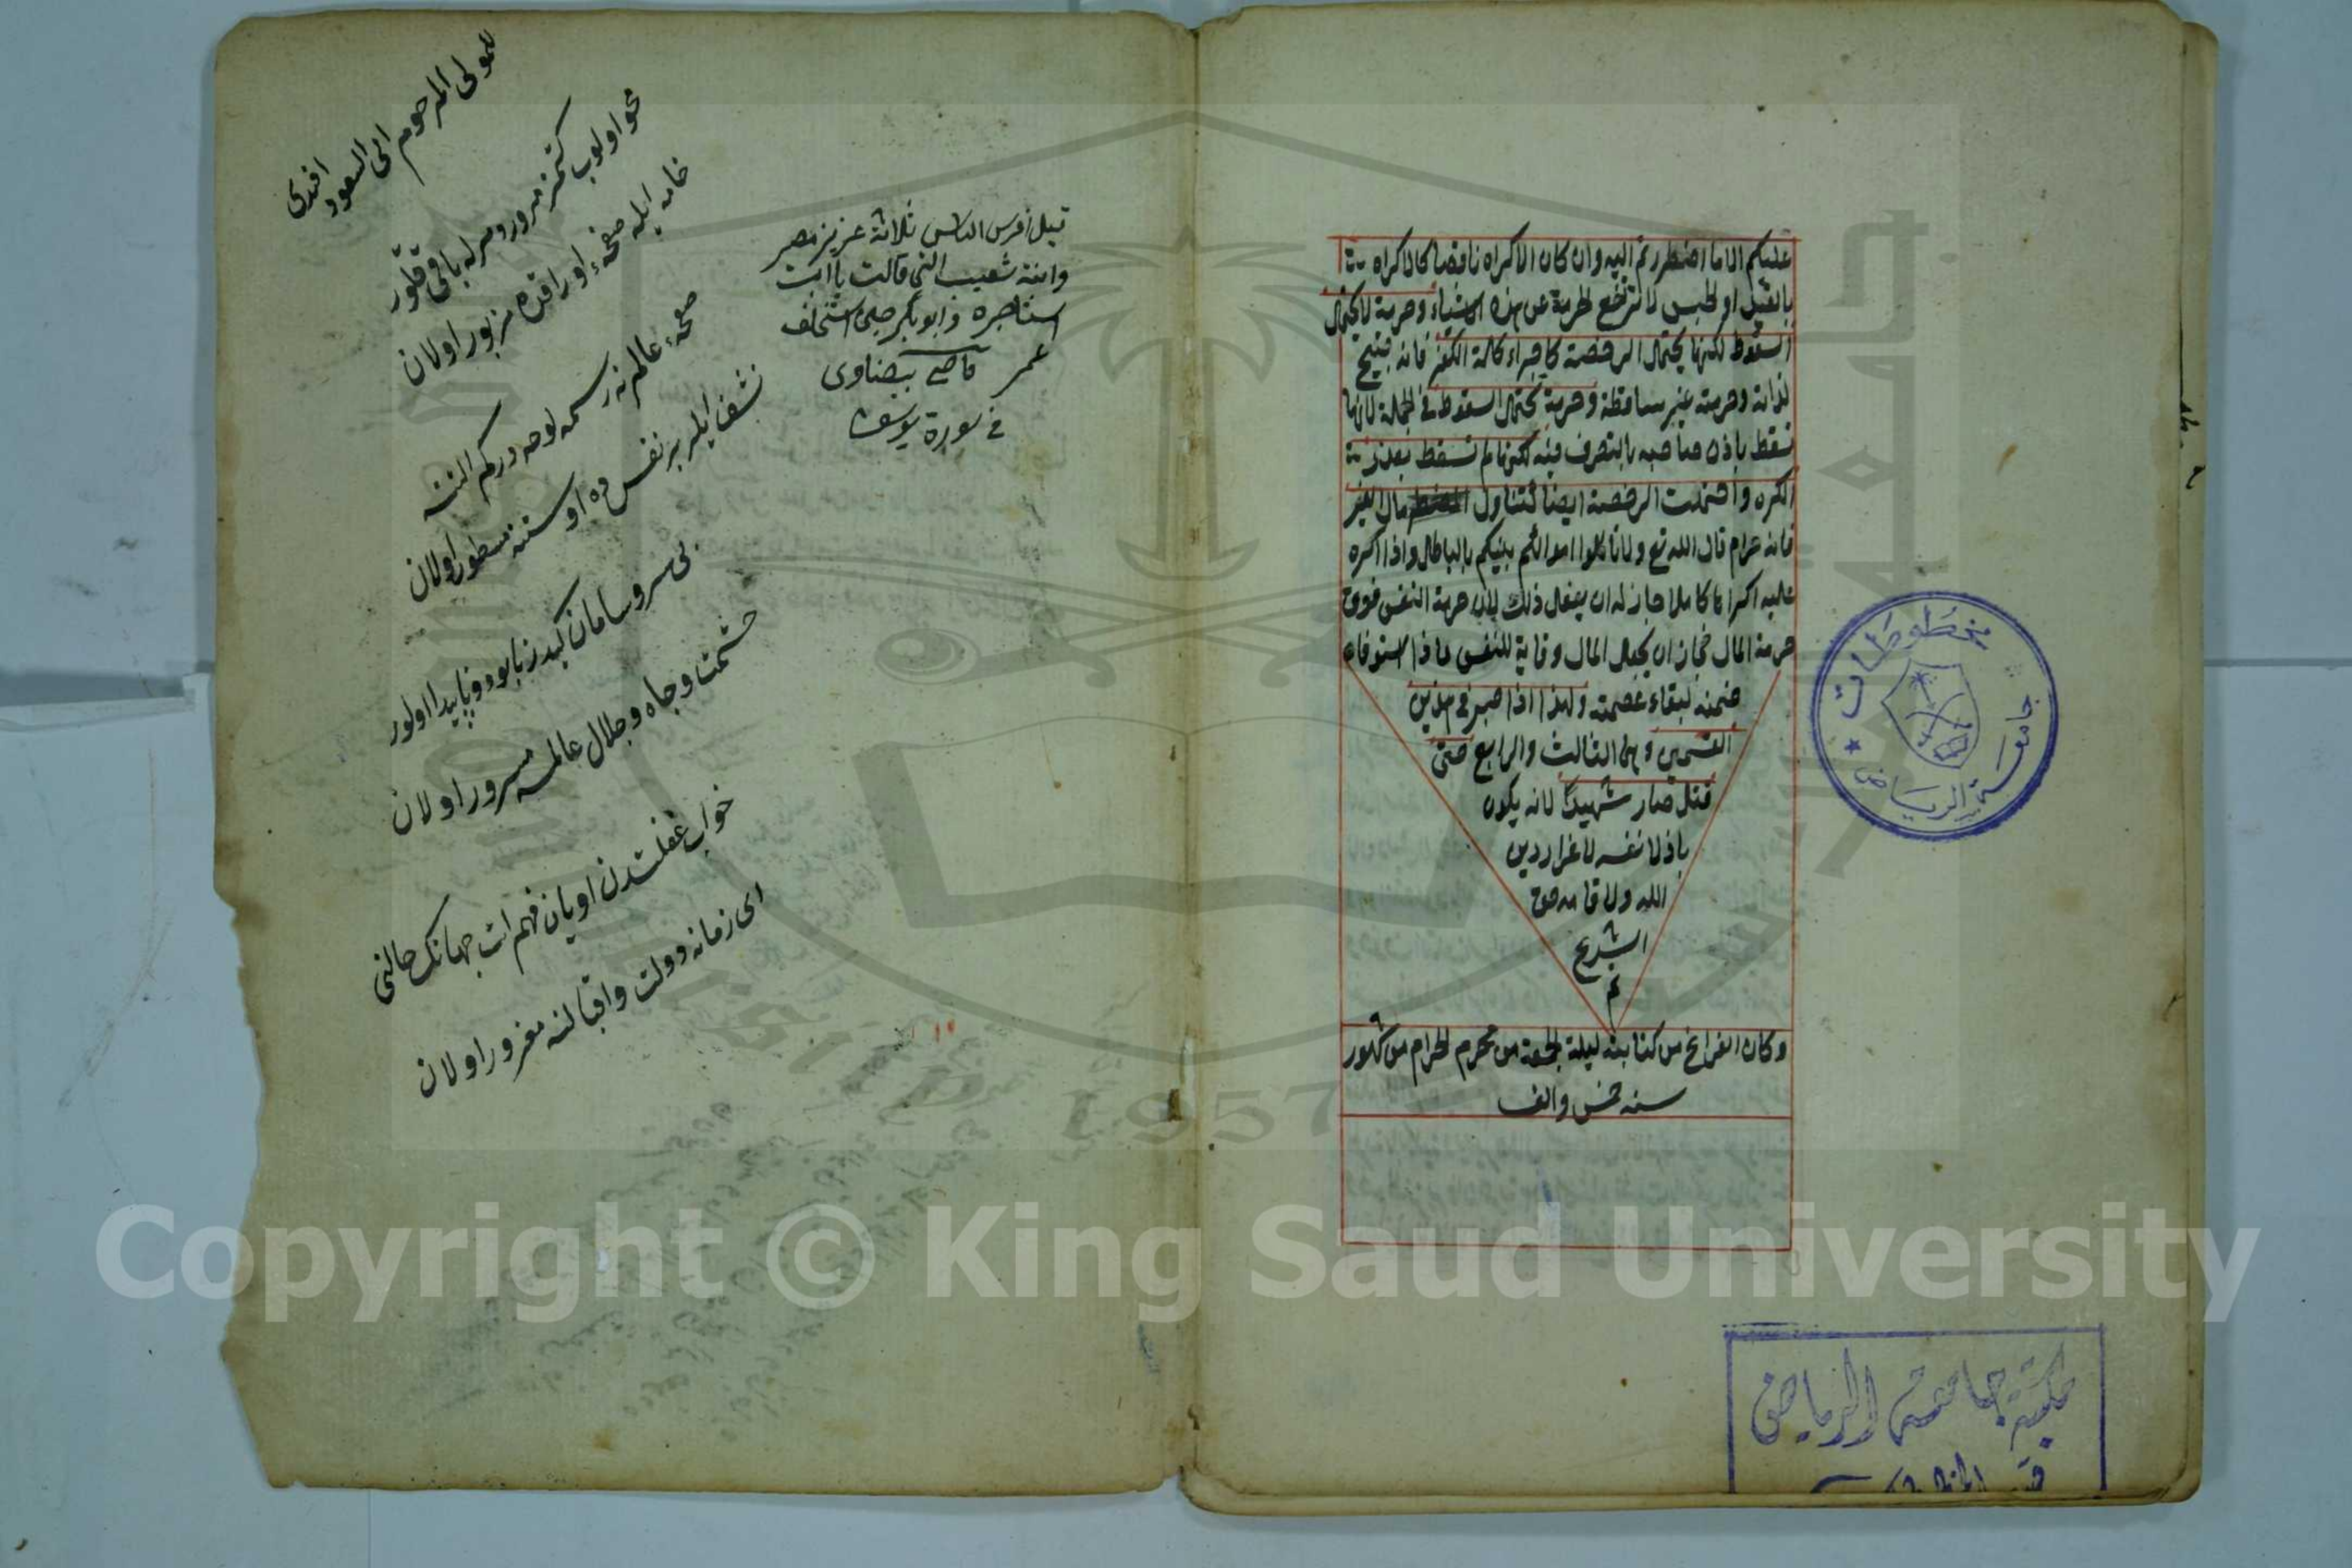 عليكم الا ما اضطررتم اليه وان كان الاكراه ناقصا كالاكراه
بالقيل او لحبس لا ترتفع لحرمة عن هذه الاشياء وحرمة لا يحتمل
السقوط لكنها يحتمل الرخصة كاجراء كلمة الكفر فانه قبيح
لذاته وحرمته غير ساقطة وحرمة تحتمل السقوط في لجملة لانها
تسقط باذن صاحبه بالتصرف فيه لكنها لم تسقط بعذر
الكره واحتملت الرخصة ايضا كتناول المضطر مال الغير
فانه حرام قال الله تع ولا تاكلوا اموالكم بينكم بالباطل واذا اكره
عليه اكراها كاملا جاز له ان يفعل ذلك لان حرمة النفس فوق
حرمة المال فجاز ان يجعل المال وقاية للنفس فاذا استوفاه
ضمنه لبقاء عصمته ولهذا اذا صبر في هذين
القسمين وهما الثالث والرابع حتى
قتل صار شهيدا لانه يكون
باذلا نفسه لاعزاز دين
الله ولاقامه حق
الشرع
تم
وكان الفراغ من كتابته ليلة لجمعة من محرم لحرام من شهور
سنه خمس والف
مخطوطات
جامعة الرياض
مكتبة جامعة الرياض
قسم المخطوطات
قيل افرس الناس ثلاثة عزيز مصر
وابنة شعيب التي قالت يا ابت
استأجره وابوبكر حين استخلف
عمر قاضى بيضاوى
في سورة يوسف
لمولى المرحوم ابى السعود
افندى
محو اولوب كتمز مرور دهر له باقى قلور
خامه ايله صفحهء اوراقده مزبور اولان
صفحهء عالم نه رسمه لوحه در كم الننه
نشف ايلر بر نفسده اوستنه مسطور اولان
بى سر وسامان كيدر نابود وناپيدا اولور
حشمت وجاه وجلال عالمه مسرور اولان
خواب غفلتدن اويان فهم ات جهانك حالنى
اى زمانه دولت واقبالنه مغرور اولان
1957
Copyright © King Saud University